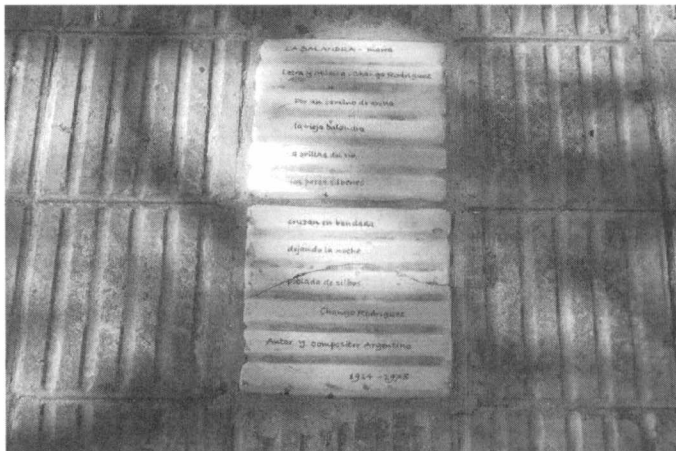 LA BALANDRA -
Letra y Música: Chango Rodriguez
Por un camino de
la vieja balandra
a orillas del río
los patos
cruzan en bandada
dejando la noche
poblado de silbos
Chango Rodriguez
Autor y compositor Argentino